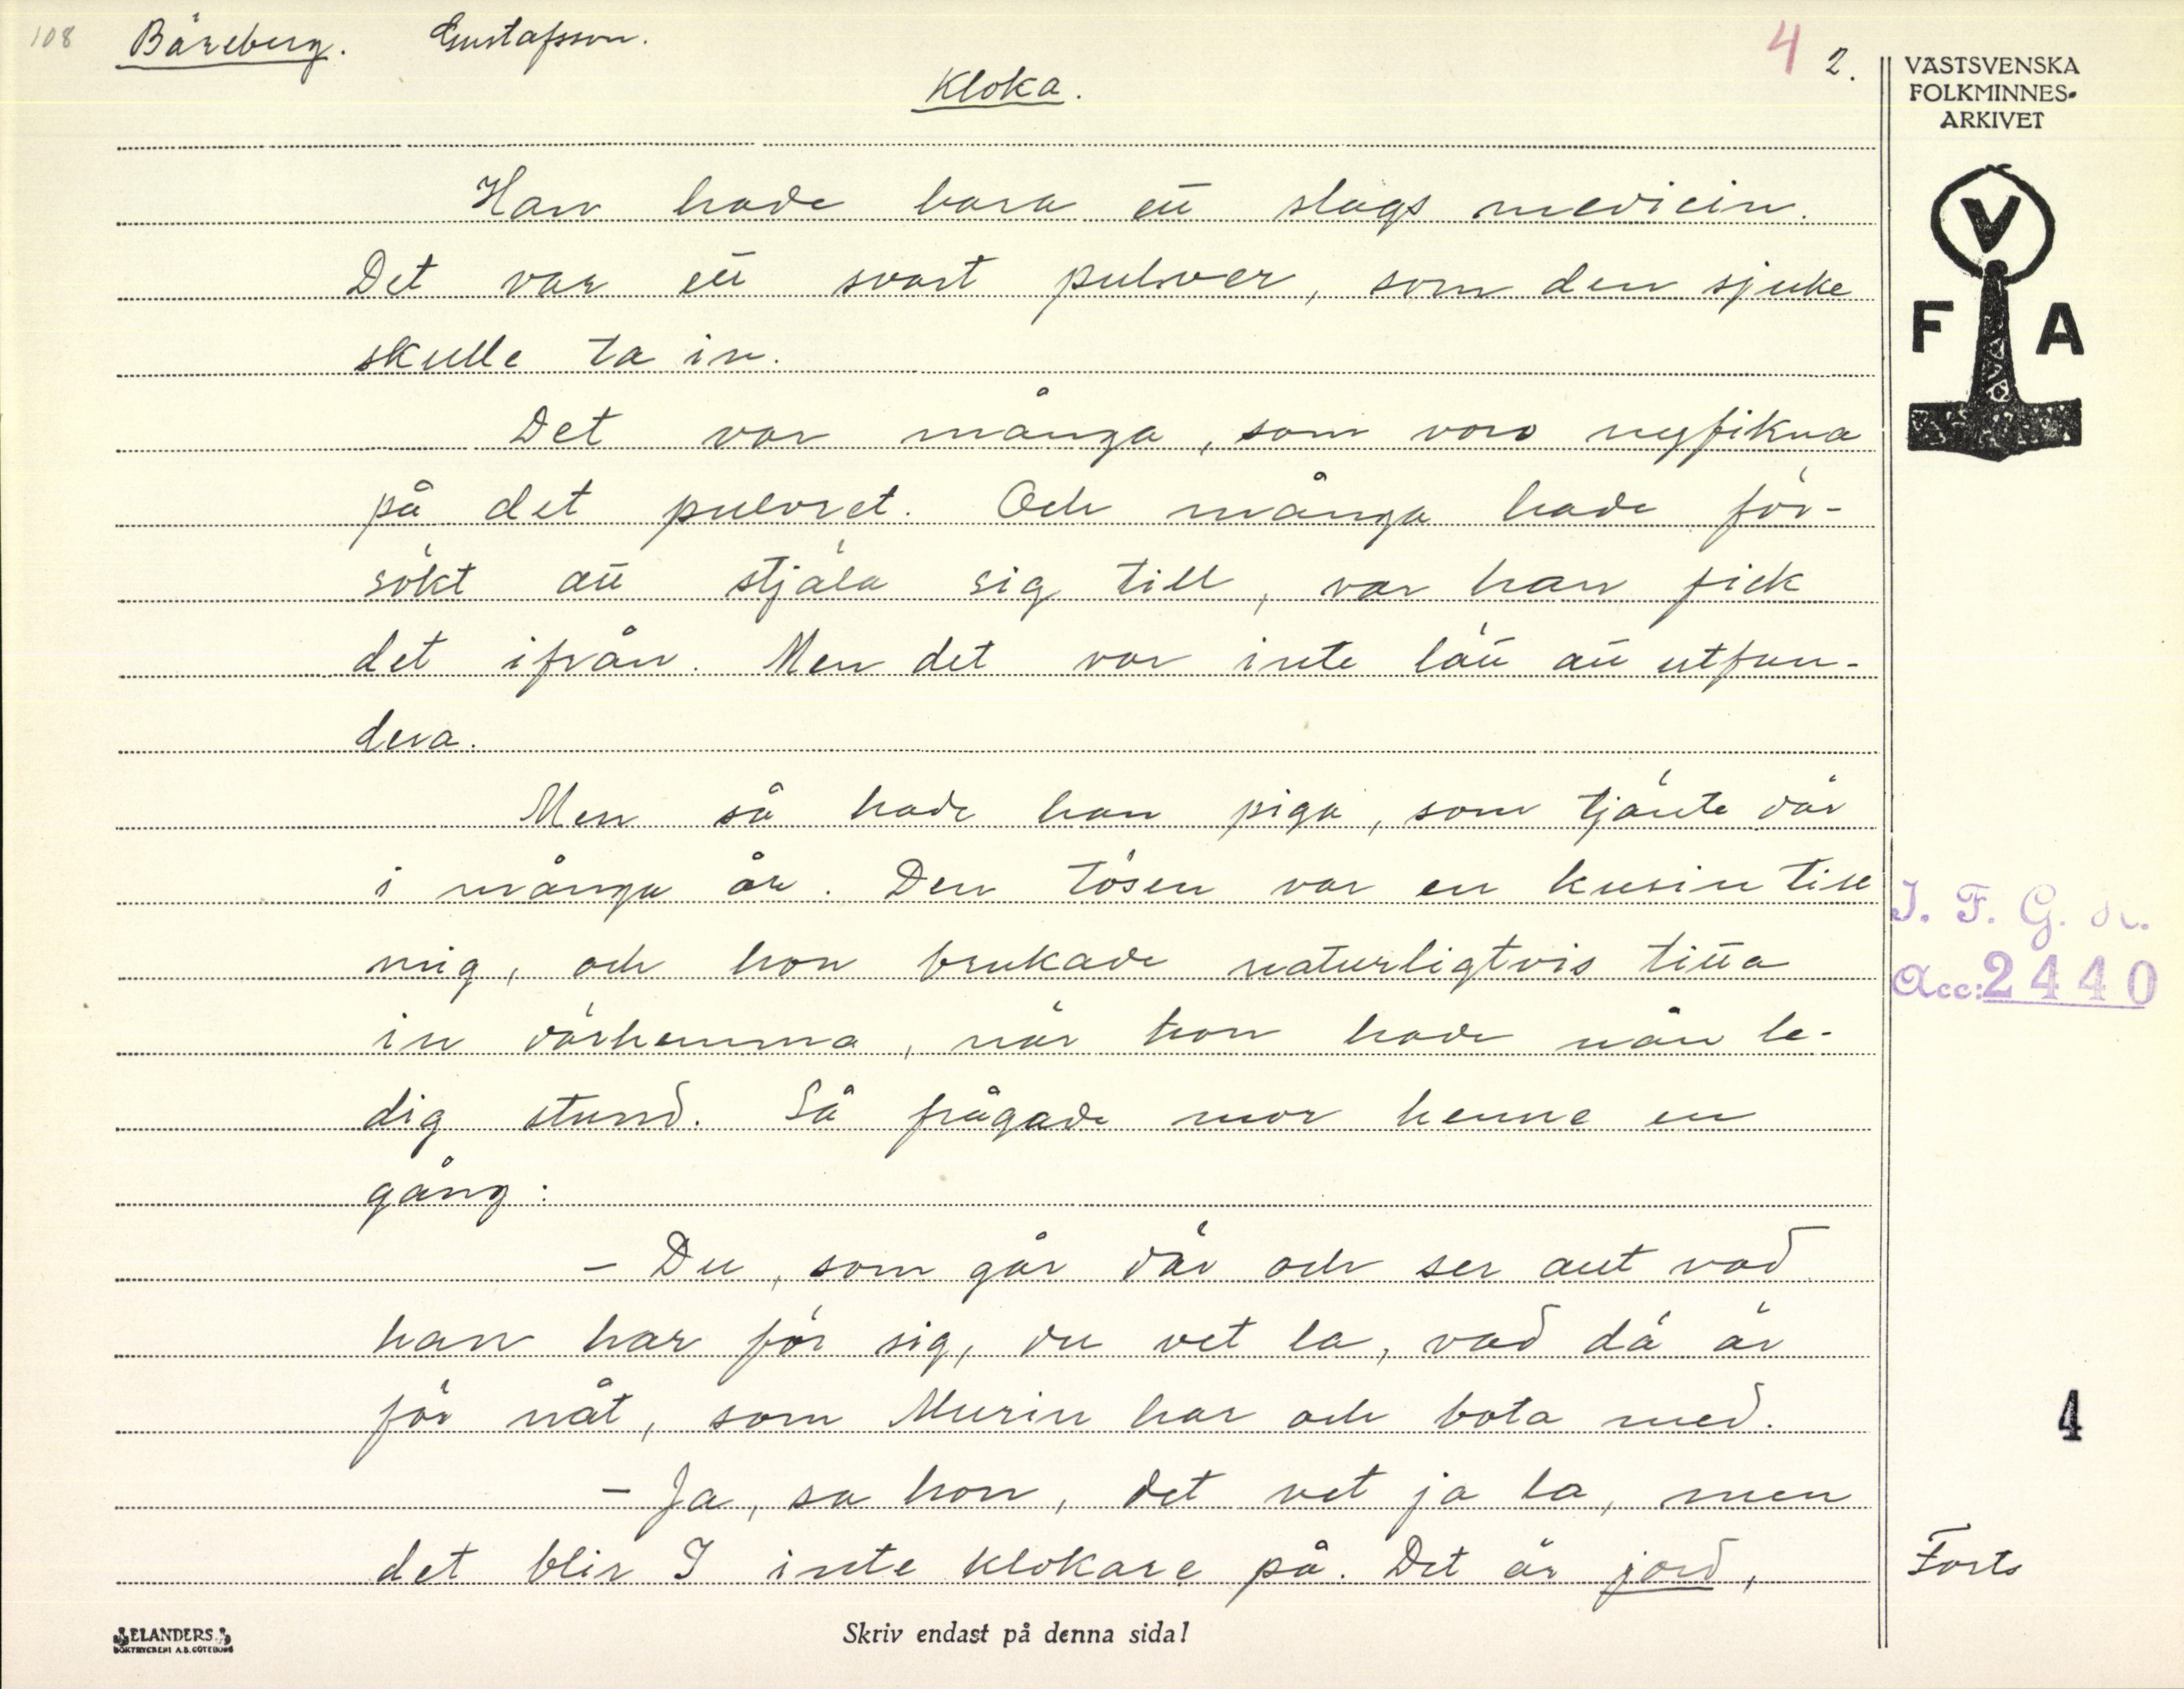 108 Båreberg. Gustafsson. 4 2.
Kloka.
Han hade bara ett slags medicin.
Det var ett svart pulver, som den sjuke
skulle ta in.
Det var många, som voro nyfikna
på det pulvret. Och många hade för-
sökt att stjäla sig till, var han fick
det ifrån. Men det var inte lätt att utfun-
dera.
Men så hade han piga, som tjänte där
i många år. Den tösen var en kusin till
mig, och hon brukade naturligtvis titta
in därhemma, när hon hade nån le-
dig stund. Så frågade mor henne en
gång:
- Du, som går där och ser allt vad
han har för sig, du vet la, vad dä är
för nåt, som Murin har och bota med.
- Ja, sa hon, det vet ja la, men
det blir I inte klokare på. Det är jord,
VÄSTSVENSKA
FOLKMINNES-
ARKIVET
V
F A
I. F. G. H.
Acc: 2440
4
Forts
ELANDERS
BOKTRYCKERI A.B. GÖTEBORG
Skriv endast på denna sida!